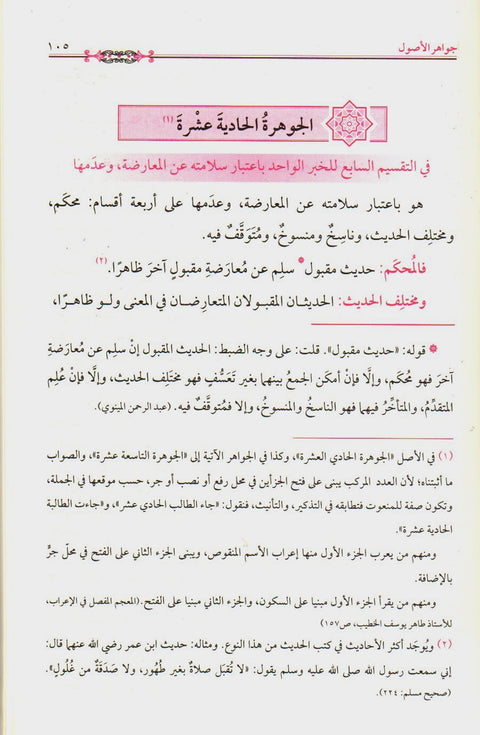 جواهر الأصول ١٠٥
الجوهرةُ الحاديةَ عشْرةَ (١)
في التقسيم السابع للخبر الواحد باعتبار سلامته عن المعارضة، وعدَمها
هو باعتبار سلامته عن المعارضة، وعدَمها على أربعة أقسام: محكَم،
ومختلِف الحديث، وناسِخٌ ومنسوخٌ، ومُتَوَقَّفٌ فيه.
فالمُحكَم: حديث مقبول* سلِم عن مُعارَضةِ مقبولٍ آخرَ ظاهرًا.(٢)
ومختلِف الحديث: الحديثان المقبولان المتعارِضان في المعنى ولو ظاهرًا،
* قوله: «حديث مقبول». قلت: على وجه الضبط: الحديث المقبول إنْ سلِم عن مُعارَضةِ
آخرَ فهو مُحكَم، وإلَّا فإنْ أمكن الجمعُ بينهما بغير تَعسُّفٍ فهو مختلِف الحديث، وإلَّا فإنْ عُلِم
المتقدِّمُ، والمتأخِّرُ فيهما فهو الناسخُ والمنسوخُ، وإلا فمُتوقَّفٌ فيه. (عبد الرحمن المينوي).
(١) في الأصل «الجوهرة الحادي العشرة»، وكذا في الجواهر الآتية إلى «الجوهرة التاسعة عشرة»، والصواب
ما أثبتناه؛ لأن العدد المركب يبنى على فتح الجزأين في محل رفع أو نصب أو جر، حسب موقعها في الجملة،
وتكون صفة للمنعوت فتطابقه في التذكير، والتأنيث، فنقول: «جاء الطالب الحادي عشر»، و«جاءت الطالبة
الحادية عشرة».
ومنهم من يعرب الجزء الأول منها إعراب الأسم المنقوص، ويبنى الجزء الثاني على الفتح في محلّ جرٍّ
بالإضافة.
ومنهم من يقرأ الجزء الأول مبنيا على السكون، والجزء الثاني مبنيا على الفتح.(المعجم المفصل في الإعراب،
للأستاذ طاهر يوسف الخطيب، ص١٥٧)
(٢) ويُوجَد أكثر الأحاديث في كتب الحديث من هذا النوع. ومثاله: حديث ابن عمر رضي الله عنهما قال:
إني سمعت رسول الله صلى الله عليه وسلم يقول: «لا تُقبَل صلاةٌ بغير طُهُور، ولا صَدَقَةٌ من غُلُولٍ».
(صحيح مسلم: ٢٢٤).